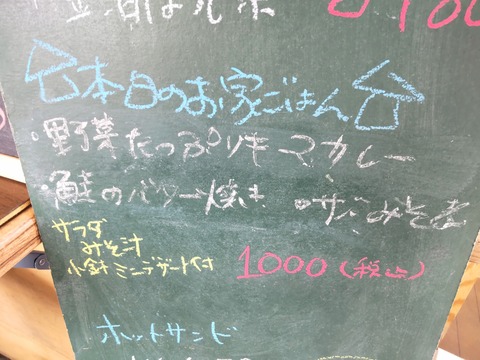 本日のお家ごはん
・野菜たっぷりキーマカレー
・鮭のバター焼き ・サバみそ煮
サラダ
みそ汁
小鉢 ミニデザート付
1000(税込)
ホットサンド